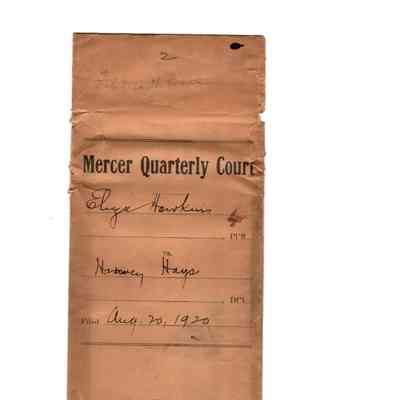 2
Mercer Quarterly Court
Eliza Hawkins
Pl'ff.
vs.
Harvey Hays
Def.
Filed Aug. 20, 1920